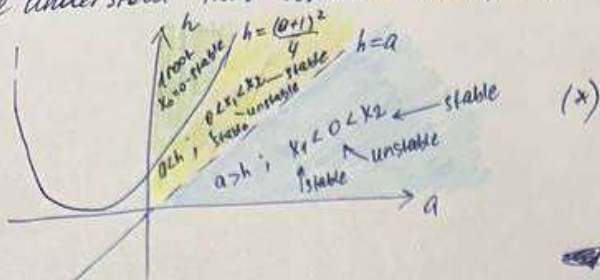 understand
h
h = (a+1)²/4
h=a
1 root
x₀=0-stable
0<x₁<x₂ — stable
stable - unstable
a<h ;
a>h ; x₁<0<x₂ ← stable
unstable
stable
(*)
a